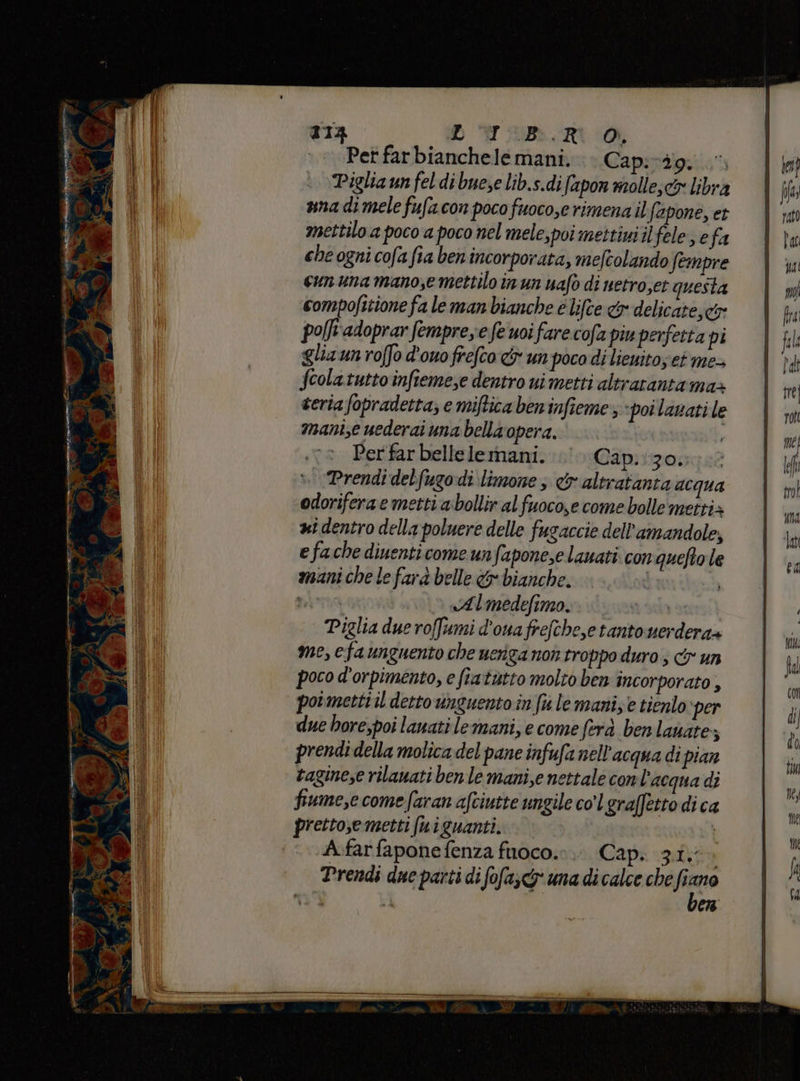 114 L I B. R O,
Per far bianche le mani. Cap. 29.
Piglia un fel di bue, e lib. s. di ſapon molle, & libra
una di mele fuſa con poco fuoco, e rimena il ſapone, et
mettilo a poco a poco nel mele, poi mettiui il fele, e fa
che ogni coſa ſia ben incorporata, meſcolando ſempre
cun una mano, e mettilo in un uaſo di uetro, et questa
compoſitione fa le man bianche e liſce & delicate, &
poſſi adoprar ſempre, e ſe uoi fare coſa piu perfetta pi
glia un roſſo d'ouo freſco & un poco di lieuito, et me-
ſcola tutto inſieme, e dentro ui metti altratanta ma-
teria ſopradetta, e miſtica ben inſieme, poi lauati le
mani, e uederai una bella opera.
Per far belle le mani. Cap. 30.
Prendi del ſugo di limone, & altratanta acqua
odorifera e metti a bollir al fuoco, e come bolle metti-
ui dentro della poluere delle fugaccie dell'amandole,
e fa che diuenti come un ſapone, e lauati con queſto le
mani che le farà belle & bianche.
Al medeſimo.
Piglia due roſſumi d'oua freſche, e tanto uerdera-
me, e fa unguento che uenga non troppo duro, & un
poco d'orpimento, e ſia tutto molto ben incorporato,
poi metti il detto unguento in ſu le mani, e tienlo per
due hore, poi lauati le mani, e come ſerà ben lauate,
prendi della molica del pane infuſa nell'acqua di pian
tagine, e rilauati ben le mani, e nettale con l'acqua di
fiume, e come ſaran aſciutte ungile co'l graſſetto di ca
pretto, e metti ſu i guanti.
A far ſapone ſenza fuoco. Cap. 31.
Prendi due parti di ſoſa, & una di calce che ſiano
ben